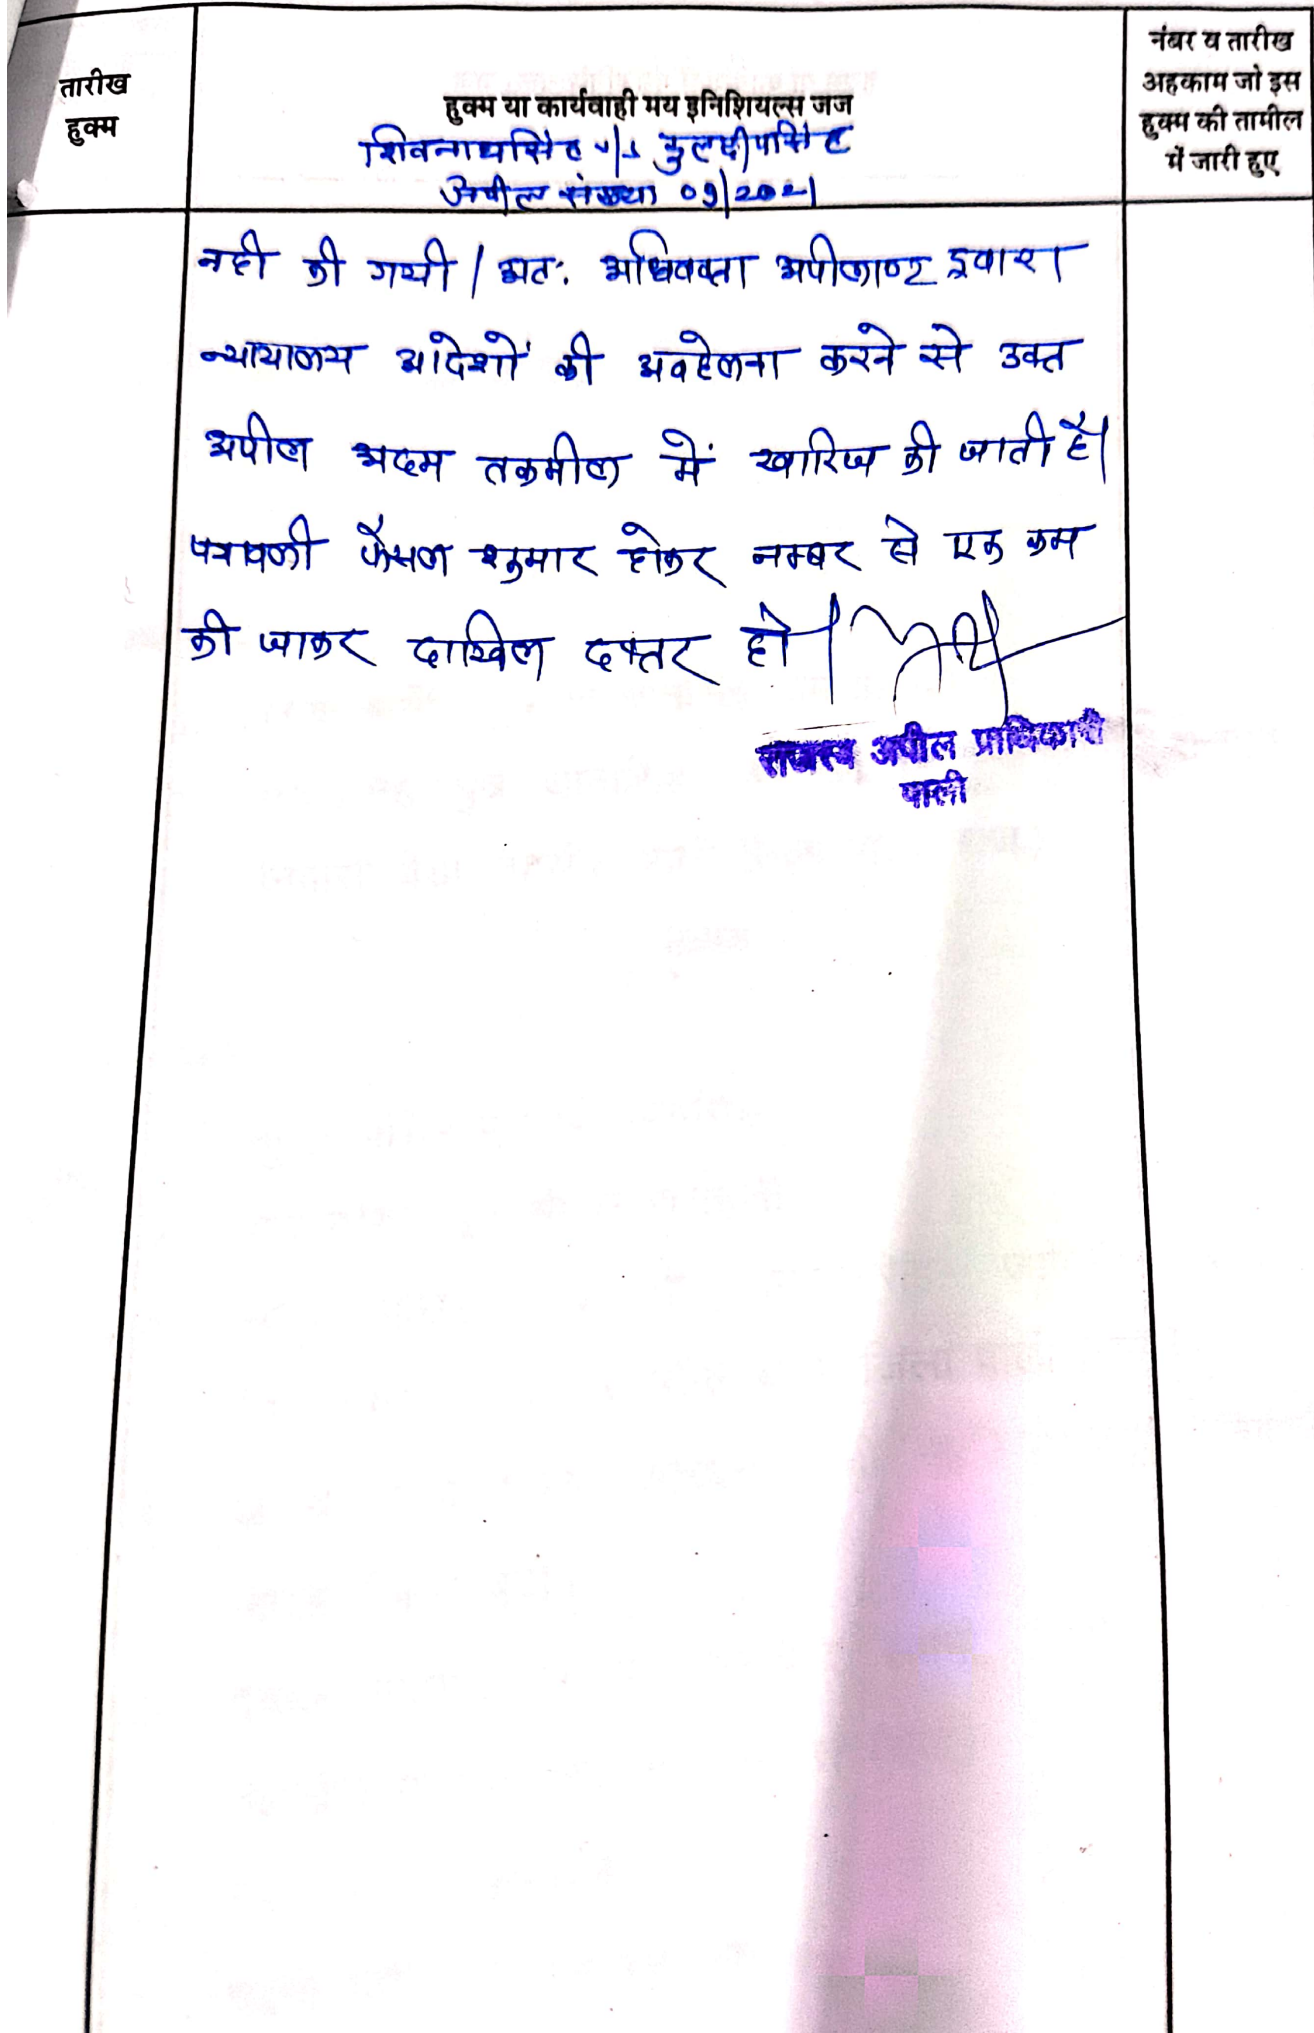 तारीख
हुक्म
हुक्म या कार्यवाही मय इनिशियल्स जज
शिवनाथसिंह v/s कुलदीपसिंह
अपील संख्या 09/2021
नंबर व तारीख
अहकाम जो इस
हुक्म की तामील
में जारी हुए
नही की गयी। अतः अधिवक्ता अपीलाण्ट द्वारा
न्यायालय आदेशों की अवहेलना करने से उक्त
अपील अदम तकमील में खारिज की जाती है।
पत्रावली फैसल शुमार होकर नम्बर से एक कम
की जाकर दाखिल दफ्तर हो।
राजस्व अपील प्राधिकारी
पाली